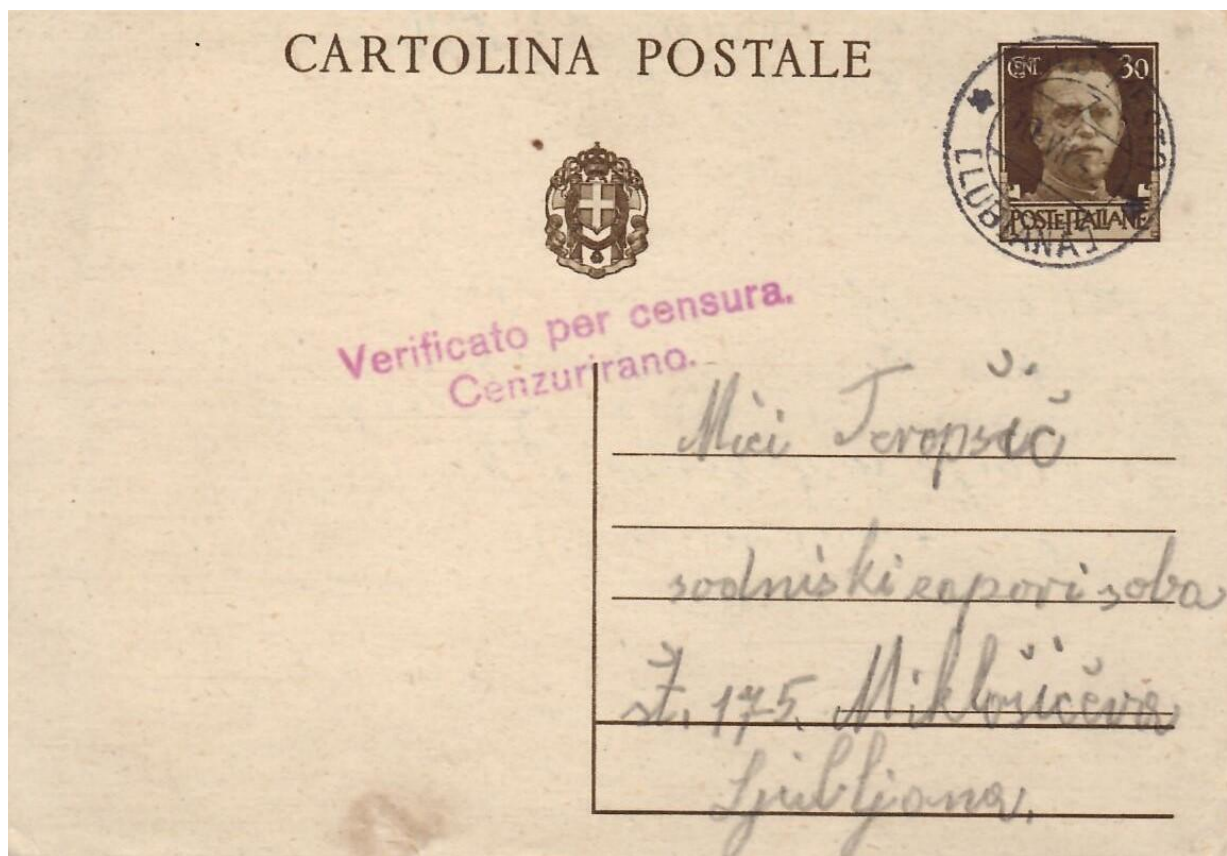 CARTOLINA POSTALE
CENT. 30
POSTE ITALIANE
LUBIANA
Verificato per censura.
Cenzurirano.
Mici Teropšič
sodniški zapori soba
št. 175. Miklošičeva
Ljubljana.